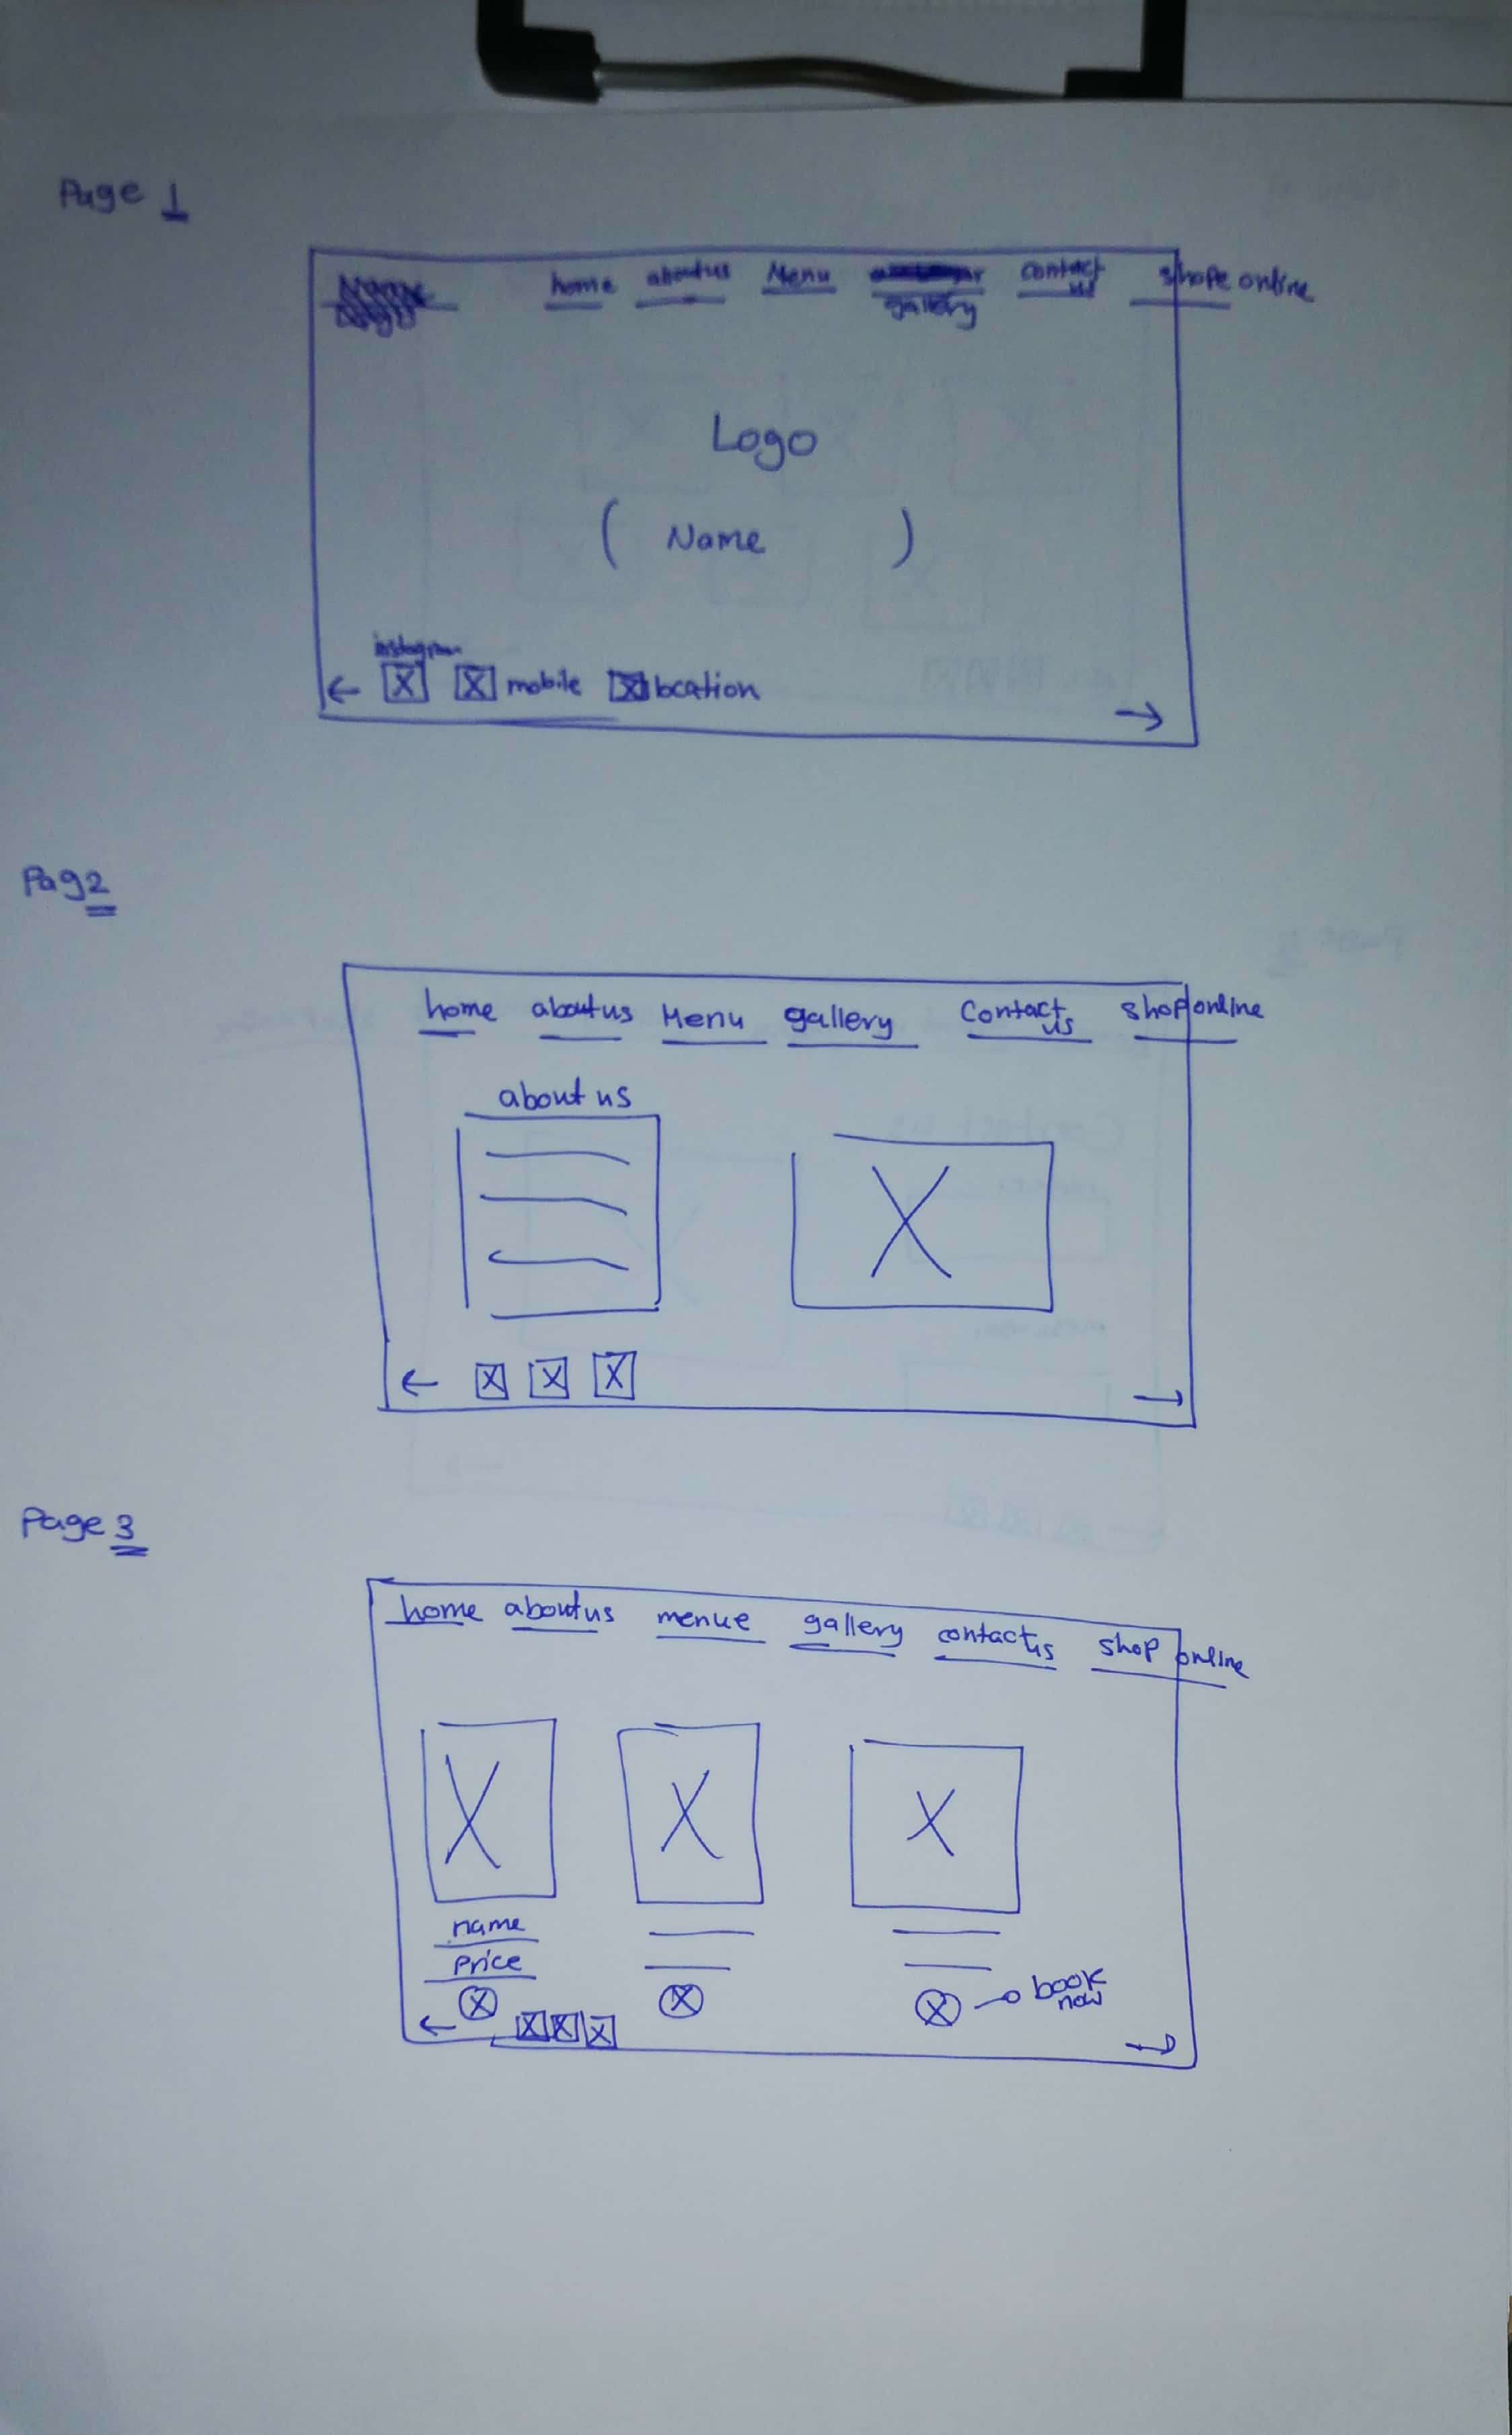 Page 1
home aboutus Menu contact us shope online
gallery
Logo
( Name )
instagram
mobile location
Pag2
home aboutus Menu gallery Contact us shop online
about us
Page 3
home aboutus menue gallery contactus shop online
name
Price
book now